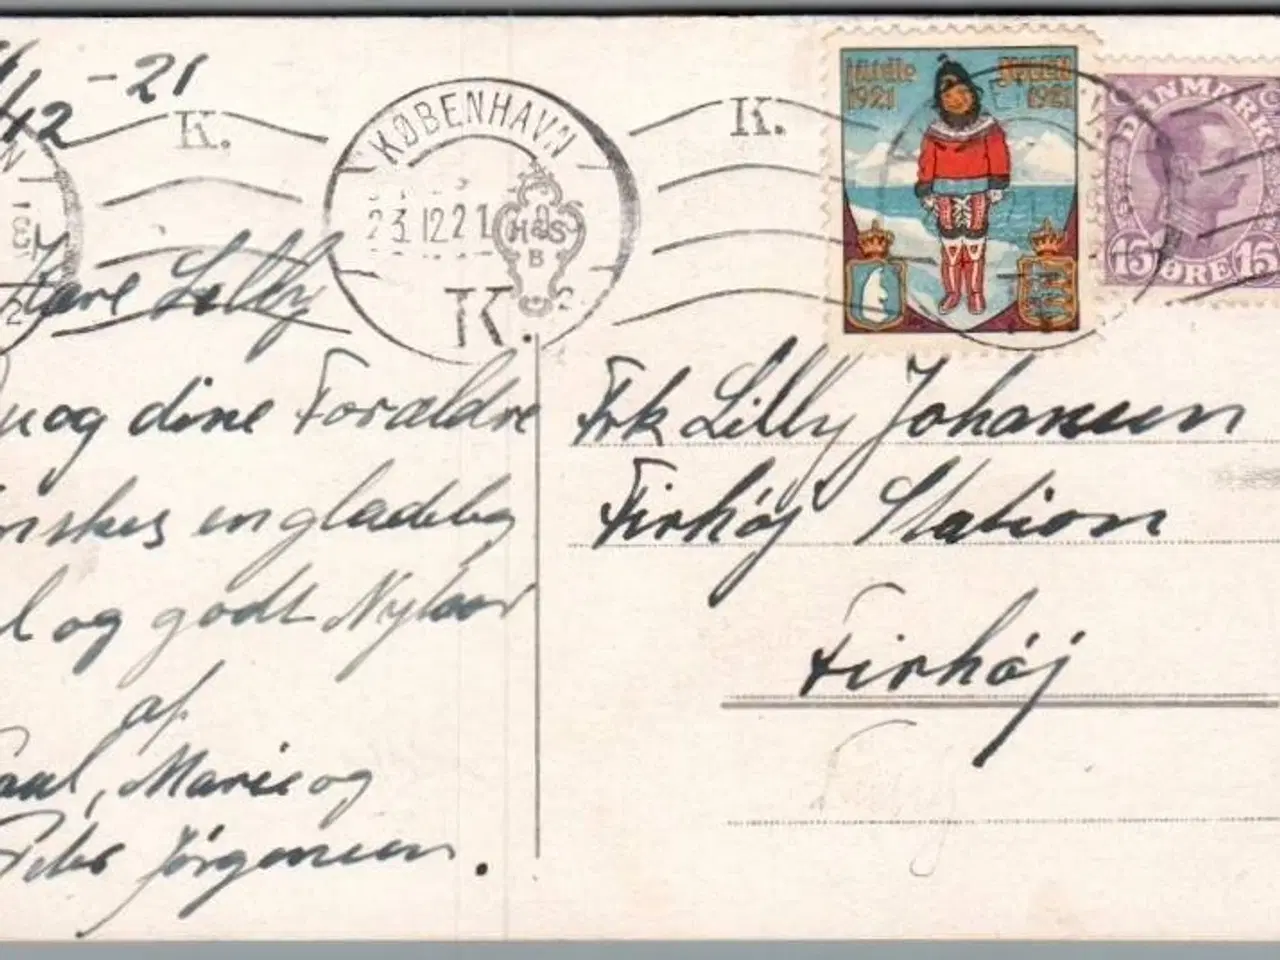 /12 -21
K.
KØBENHAVN
23.12.21
H&S
B
K.
2
K.
JULEN
1921
1921
DANMARK
15 ØRE 15
Kære Lilly
Du og dine Forældre
ønskes en glædelig
Jul og godt Nytaar
af
Paul, Marie og
Peter Jørgensen.
Frk Lilly Johansen
Firhøj Station
Firhøj